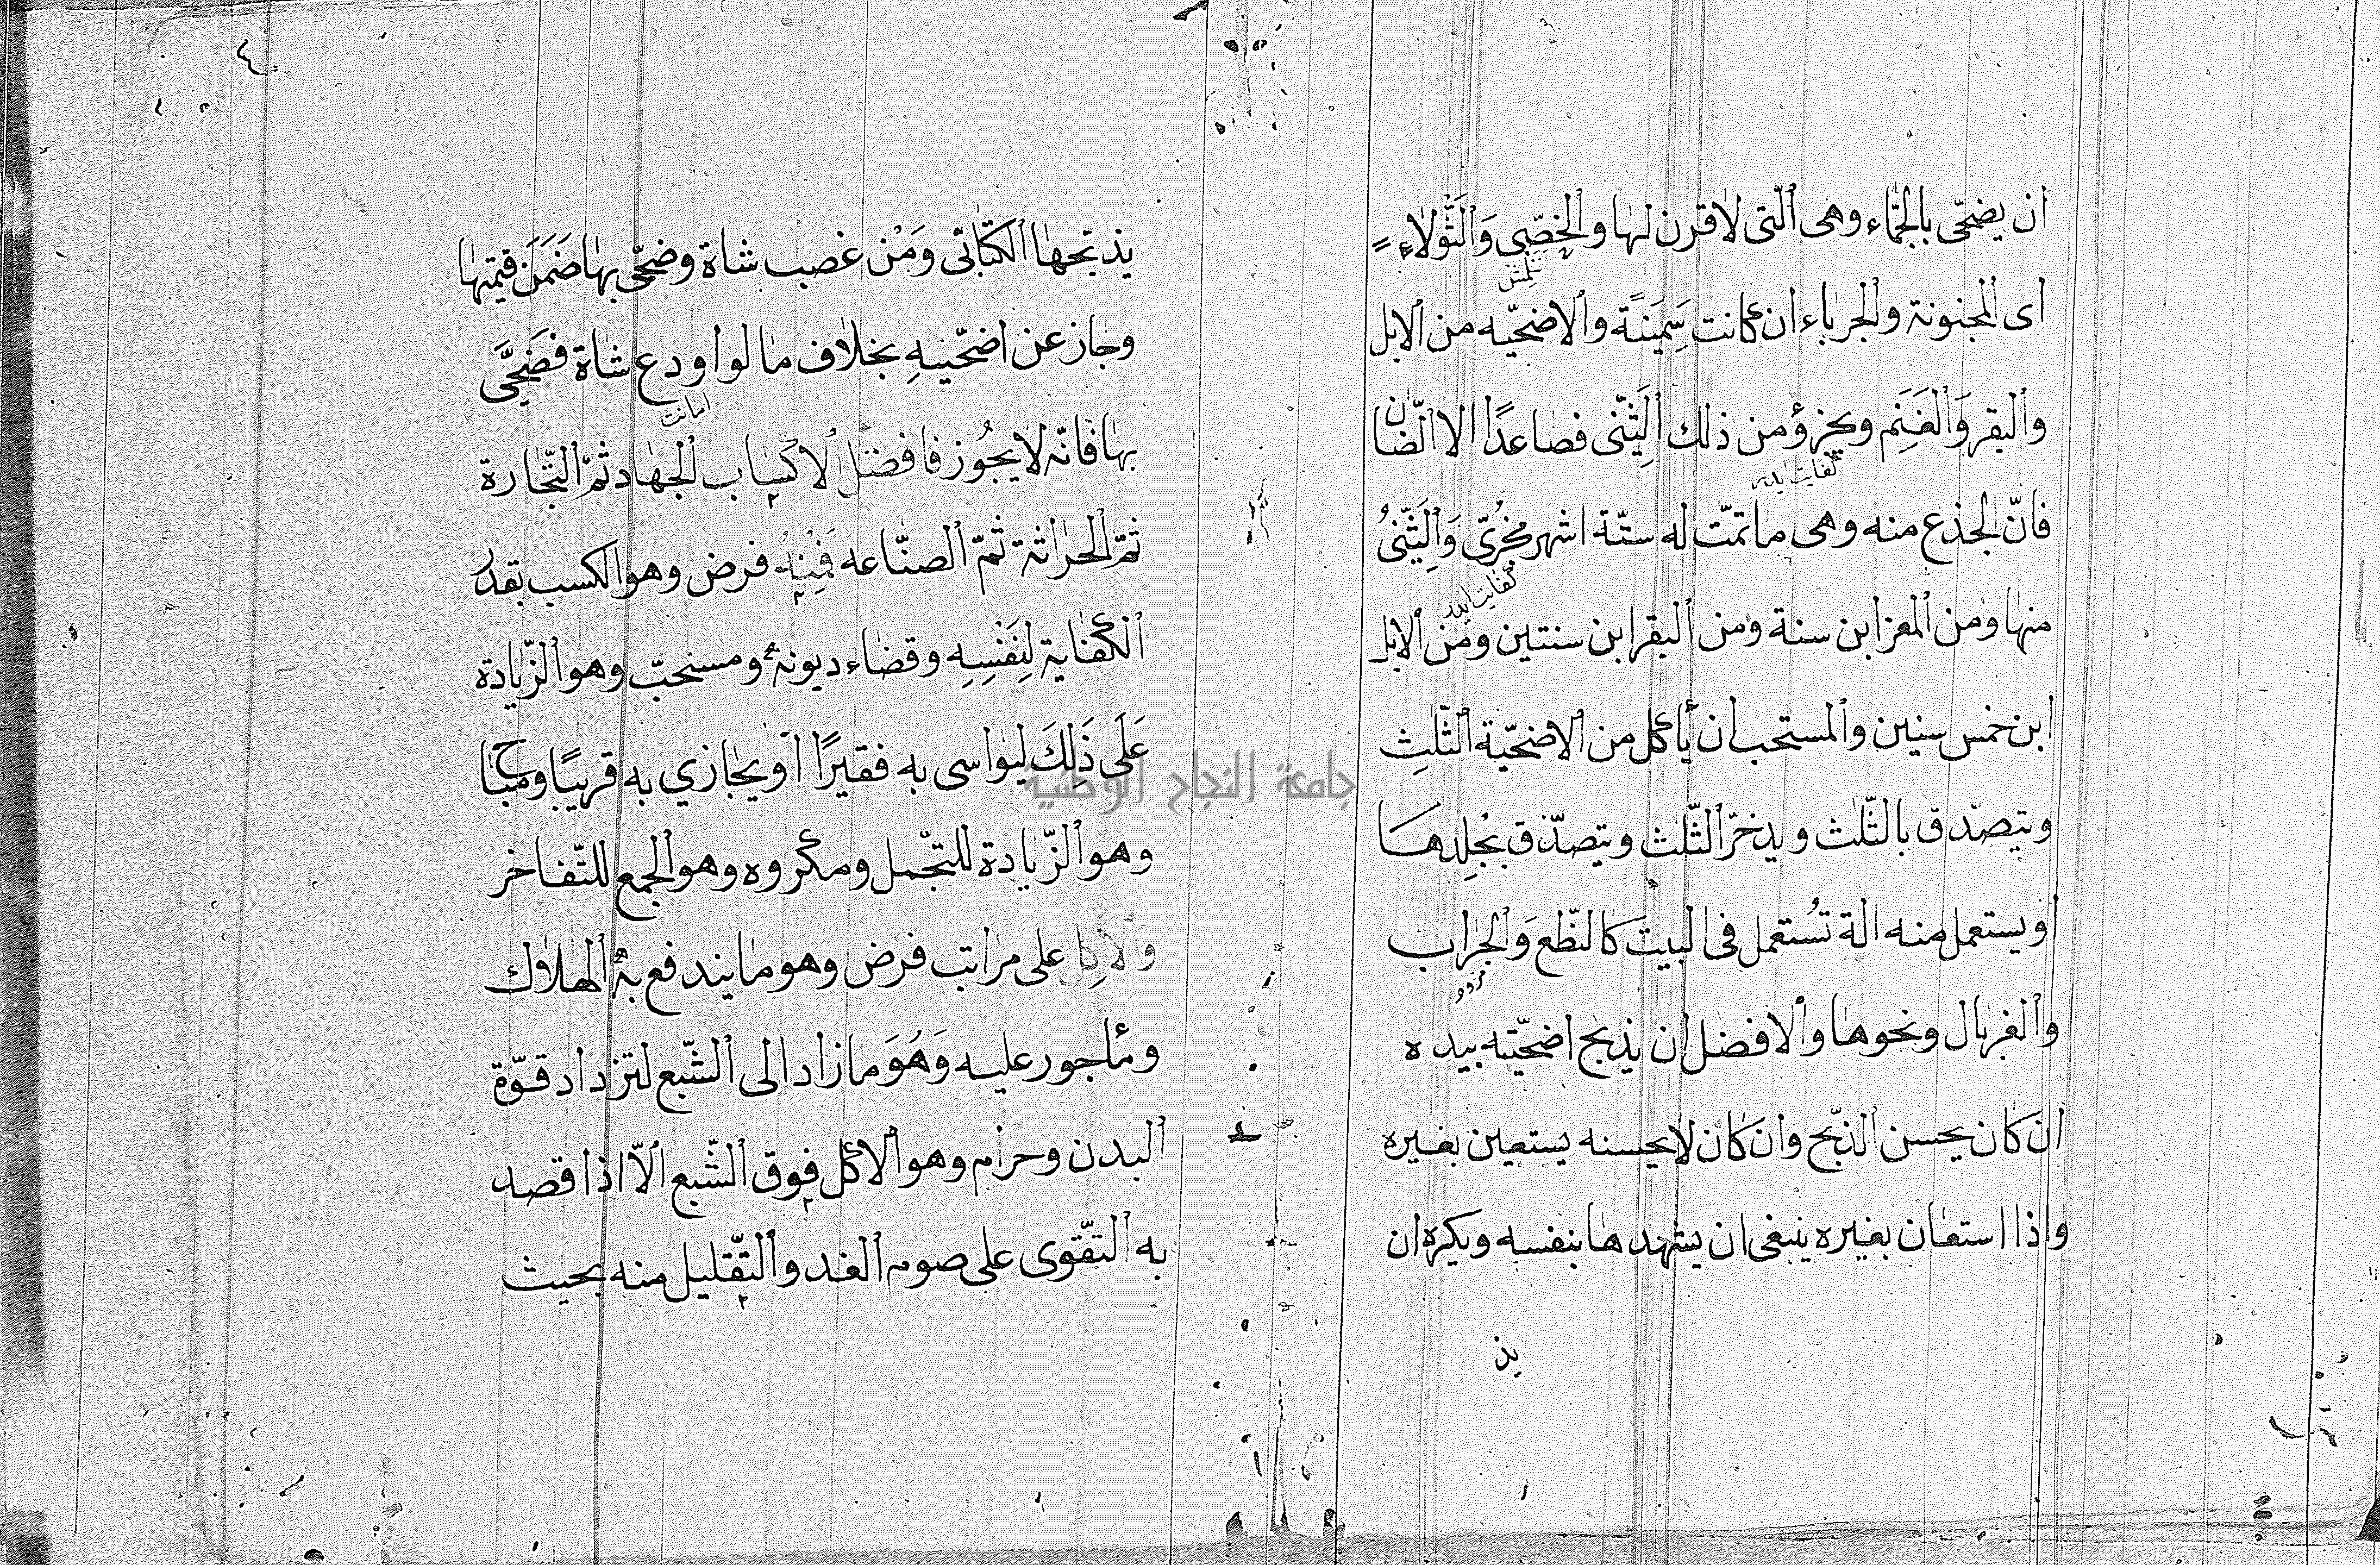 ان يضحّى بالجّماء وهى الّتى لا قرن لها والخصّى وَالثَّولاءِ
اى المجنونة والجرباء ان كانت سَمِيَنَةً والاضحيّه من الابل
والبقر وَالغَنَمِ ويجزؤ من ذلك الِثنّى فصاعدًا الا الضّان
فانّ الجذع منه وهى ما تمّت له ستّة اشهر مجُزىّ وَالِثّنىُ
منها ومن المعز ابن سنة ومن البقر ابن سنتين ومن الابل
ابن خمس سنين والمستحب ان يأكل من الاضحيّة الثّلثِ
ويتصدّق بالثّلث ويدخر الثّلث ويتصدّق بجُلِدها
او يستعمل منه الة تُستعمل فى البيت كالنّطع وَالجراب
والغربال ونحوها والافضل ان يذبح اضحيّته بيده
ان كان يحسن الذبّح وان كان لا يحسنه يستعين بغيره
واذا استعان بغيره ينبغى ان يشهدها بنفسه ويكره ان
يذ
٤
يذبحها الكتابّى وَمَنْ غصب شاة وضحّى بها ضَمَنَ قيمتها
وجاز عن اضحّيتهِ بخلاف ما لو اودع شاة فضَحَّى
امانت
بها فانّه لا يجُوز فافضل الاكساب الجهاد ثمّ التّجارة
ثمّ الحراثة ثمّ الصنّاعه فَمِنهُ فرض وهو الكسب بقدر
الكفاية لِنَفْسِهِ وقضاء ديونه ومستحبّ وهو الزّيادة
عَلَى ذَلِكَ ليواسى به فقيرًا او يجازي به قريبًا ومباح
وهو الزّيادة للتجّمل ومكروه وهو الجمع للتّفاخر
والاكل على مراتب فرض وهو ما يندفع به الهلاك
ومأجور عليه وَهُوَ ما زاد الى الشّبع لتزداد قوّة
البدن وحرام وهو الاكل فوق الشّبع الاّ اذا قصد
به التقّوى على صوم الغد والتّقليل منه بحيث
جامعة النجاح الوطنية